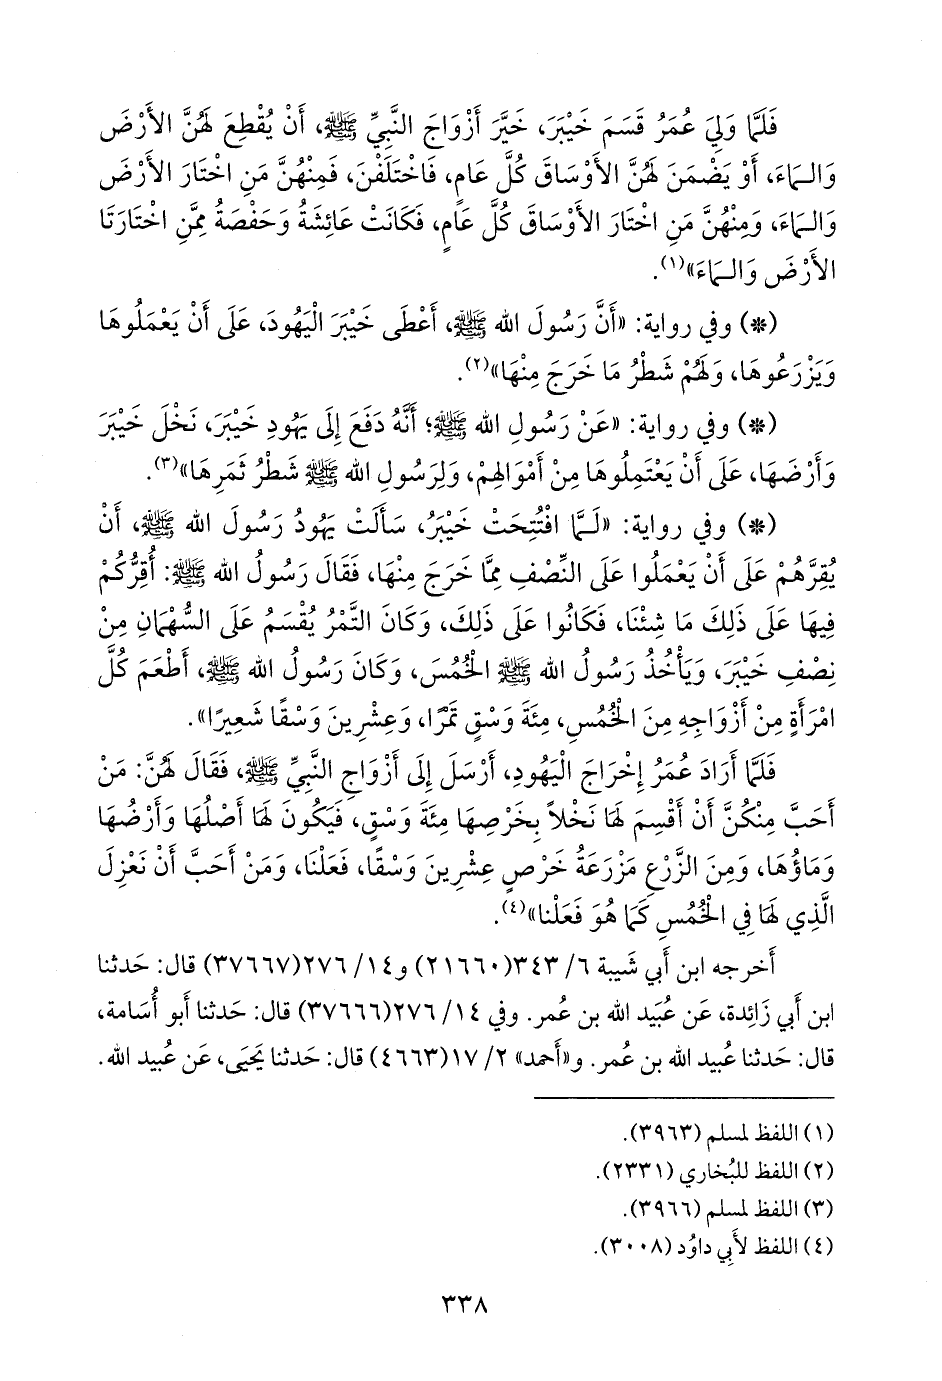 فَلَمَّا وَلِيَ عُمَرُ قَسَمَ خَيْبَرَ، خَيَّرَ أَزْوَاجَ النَّبِيِّ ﷺ، أَنْ يُقْطِعَ لَهُنَّ الأَرْضَ
وَالـمَاءَ، أَوْ يَضْمَنَ لَهُنَّ الأَوْسَاقَ كُلَّ عَامٍ، فَاخْتَلَفْنَ، فَمِنْهُنَّ مَنِ اخْتَارَ الأَرْضَ
وَالـمَاءَ، وَمِنْهُنَّ مَنِ اخْتَارَ الأَوْسَاقَ كُلَّ عَامٍ، فَكَانَتْ عَائِشَةُ وَحَفْصَةُ مِمَّنِ اخْتَارَتَا
الأَرْضَ وَالـمَاءَ»(١).
(*) وفي رواية: «أَنَّ رَسُولَ الله ﷺ، أَعْطَى خَيْبَرَ الْيَهُودَ، عَلَى أَنْ يَعْمَلُوهَا
وَيَزْرَعُوهَا، وَلَهُمْ شَطْرُ مَا خَرَجَ مِنْهَا»(٢).
(*) وفي رواية: «عَنْ رَسُولِ الله ﷺ؛ أَنَّهُ دَفَعَ إِلَى يَهُودِ خَيْبَرَ، نَخْلَ خَيْبَرَ
وَأَرْضَهَا، عَلَى أَنْ يَعْتَمِلُوهَا مِنْ أَمْوَالِهِمْ، وَلِرَسُولِ الله ﷺ شَطْرُ ثَمَرِهَا»(٣).
(*) وفي رواية: «لَـمَّا افْتُتِحَتْ خَيْبَرُ، سَأَلَتْ يَهُودُ رَسُولَ الله ﷺ، أَنْ
يُقِرَّهُمْ عَلَى أَنْ يَعْمَلُوا عَلَى النِّصْفِ مِمَّا خَرَجَ مِنْهَا، فَقَالَ رَسُولُ الله ﷺ: أُقِرُّكُمْ
فِيهَا عَلَى ذَلِكَ مَا شِئْنَا، فَكَانُوا عَلَى ذَلِكَ، وَكَانَ التَّمْرُ يُقْسَمُ عَلَى السُّهْمَانِ مِنْ
نِصْفِ خَيْبَرَ، وَيَأْخُذُ رَسُولُ الله ﷺ الْخُمُسَ، وَكَانَ رَسُولُ الله ﷺ، أَطْعَمَ كُلَّ
امْرَأَةٍ مِنْ أَزْوَاجِهِ مِنَ الْخُمُسِ، مِئَةَ وَسْقٍ تَمْرًا، وَعِشْرِينَ وَسْقًا شَعِيرًا».
فَلَمَّا أَرَادَ عُمَرُ إِخْرَاجَ الْيَهُودِ، أَرْسَلَ إِلَى أَزْوَاجِ النَّبِيِّ ﷺ، فَقَالَ لَهُنَّ: مَنْ
أَحَبَّ مِنْكُنَّ أَنْ أَقْسِمَ لَهَا نَخْلاً بِخَرْصِهَا مِئَةَ وَسْقٍ، فَيَكُونَ لَهَا أَصْلُهَا وَأَرْضُهَا
وَمَاؤُهَا، وَمِنَ الزَّرْعِ مَزْرَعَةُ خَرْصٍ عِشْرِينَ وَسْقًا، فَعَلْنَا، وَمَنْ أَحَبَّ أَنْ نَعْزِلَ
الَّذِي لَهَا فِي الْخُمُسِ كَمَا هُوَ فَعَلْنا»(٤).
أَخرجه ابن أَبي شَيبة ٦/ ٣٤٣(٢١٦٦٠) و١٤/ ٢٧٦(٣٧٦٦٧) قال: حَدثنا
ابن أَبي زَائِدة، عَن عُبَيد الله بن عُمر. وفي ١٤/ ٢٧٦(٣٧٦٦٦) قال: حَدثنا أَبو أُسَامة،
قال: حَدثنا عُبيد الله بن عُمر. و«أَحمد» ٢/ ١٧(٤٦٦٣) قال: حَدثنا يَحيَى، عَن عُبيد الله.
(١) اللفظ لمسلم (٣٩٦٣).
(٢) اللفظ للبُخاري (٢٣٣١).
(٣) اللفظ لمسلم (٣٩٦٦).
(٤) اللفظ لأَبي داوُد (٣٠٠٨).
٣٣٨